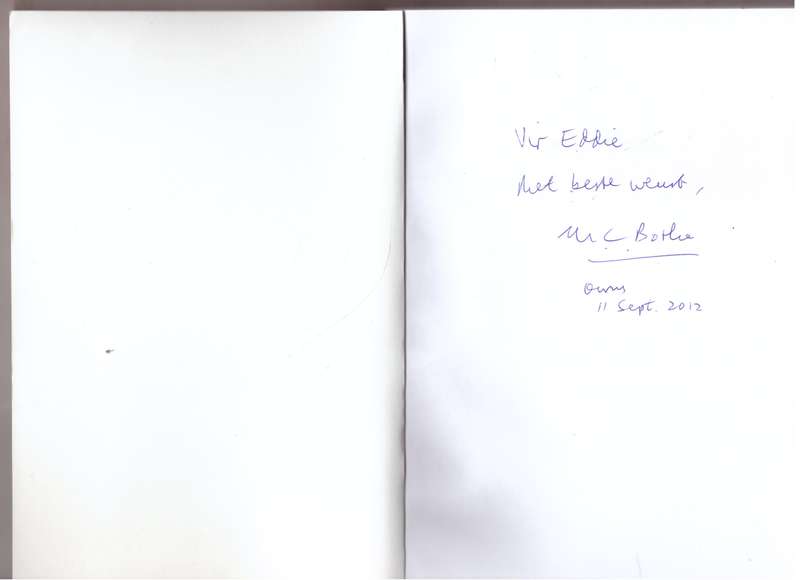 Vir Eddie
Met beste wense,
M C Botha
11 Sept. 2012